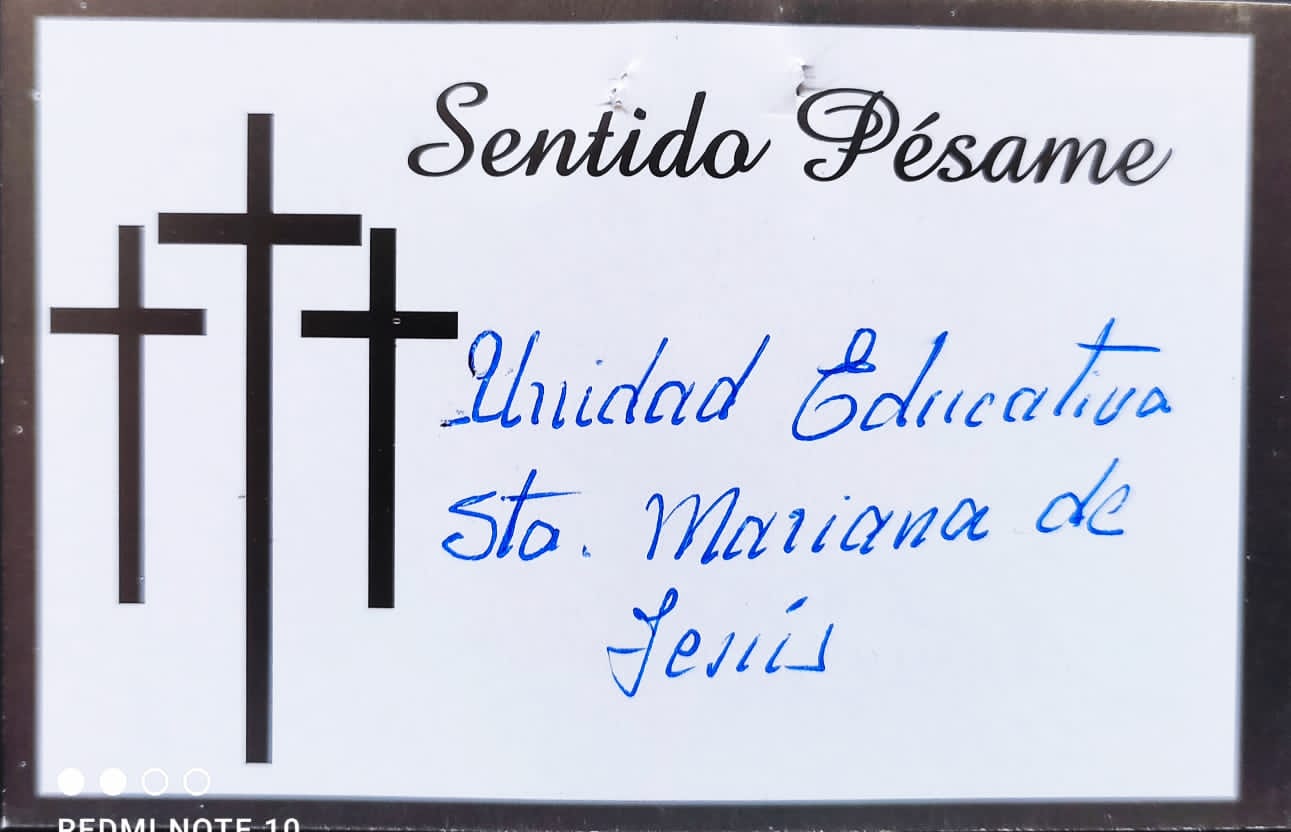 Sentido Pésame
Unidad Educativa
Sta. Mariana de
Jesús
REDMI NOTE 10